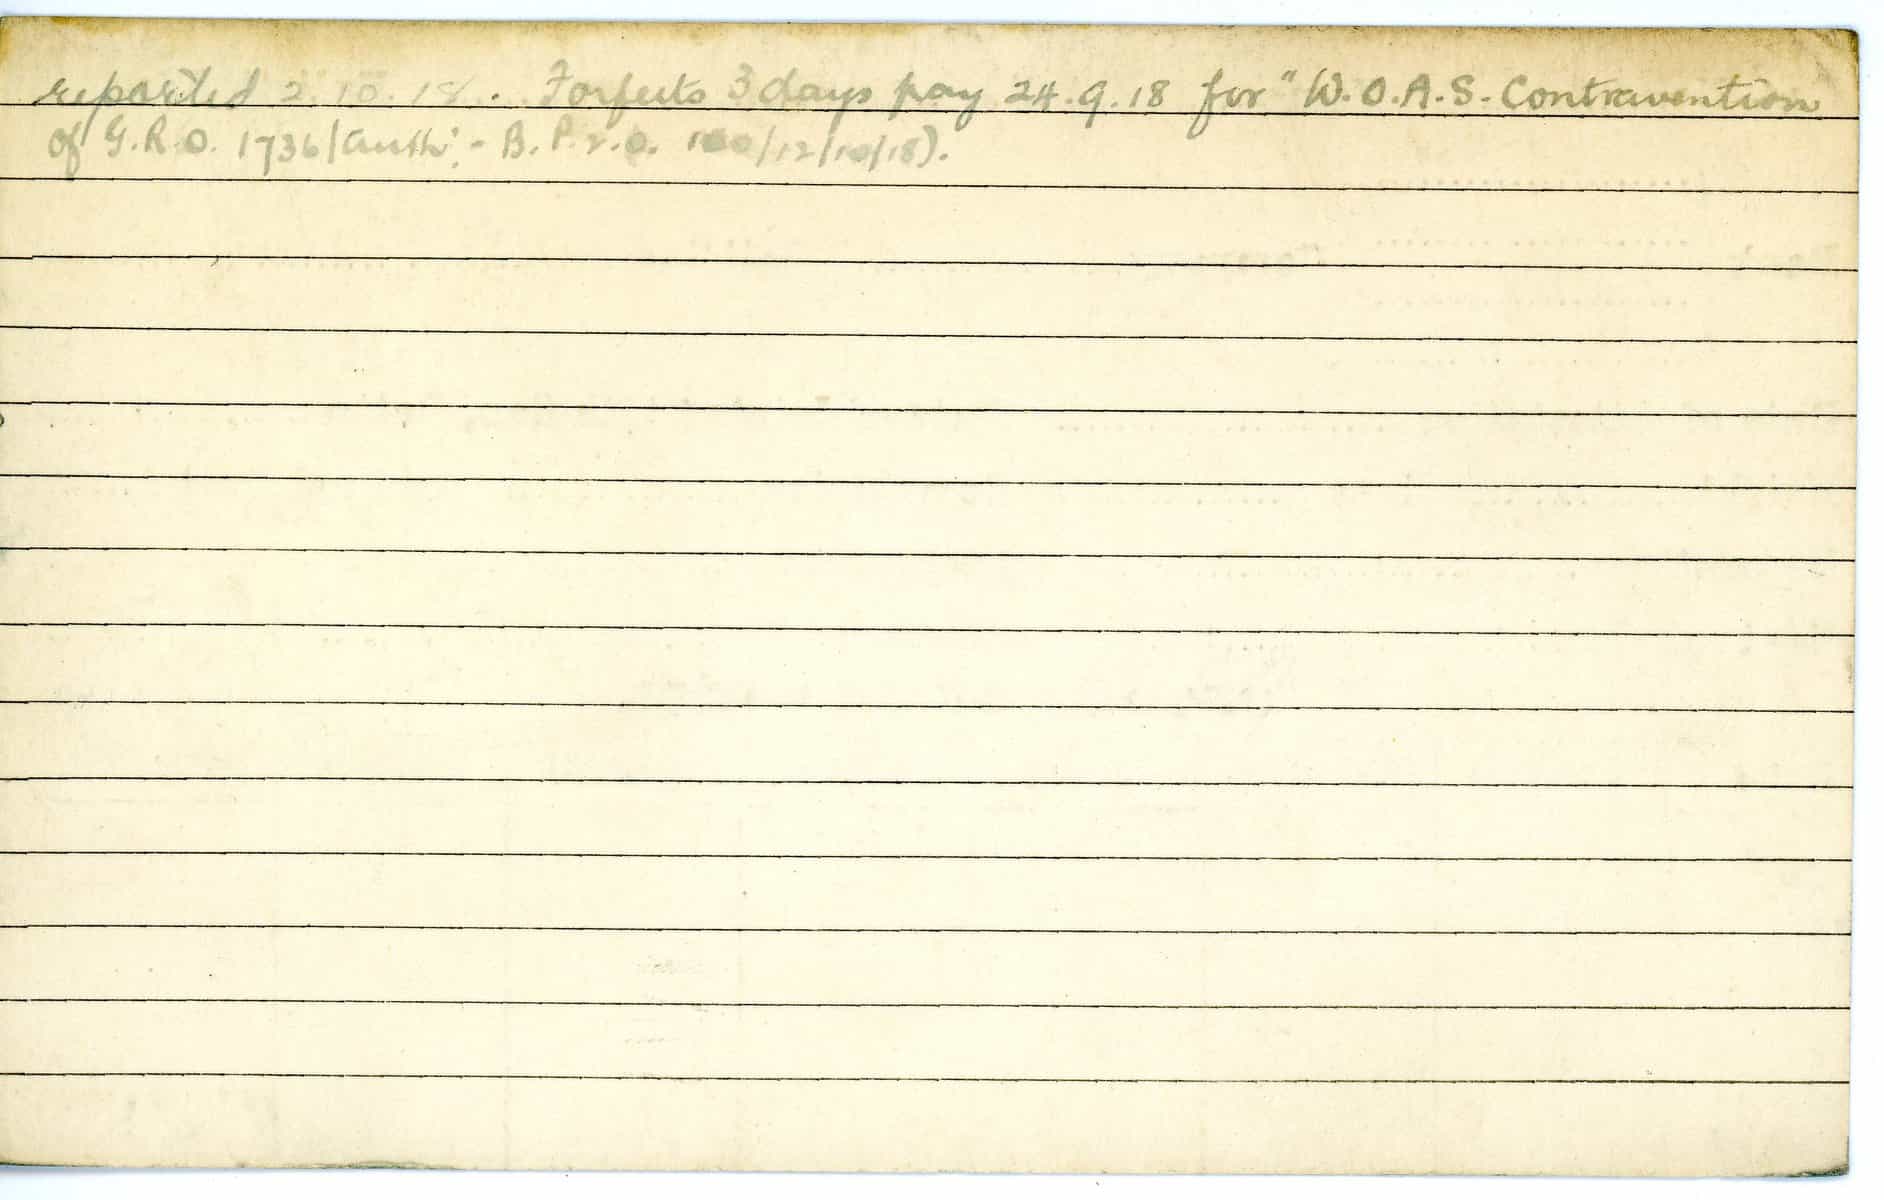 reported 2.10.18. Forfeits 3 days pay 24.9.18 for "W.O.A.S. Contravention
of G.R.O. 1736/Auth:- B.P.2.O. 100/12/10/18).